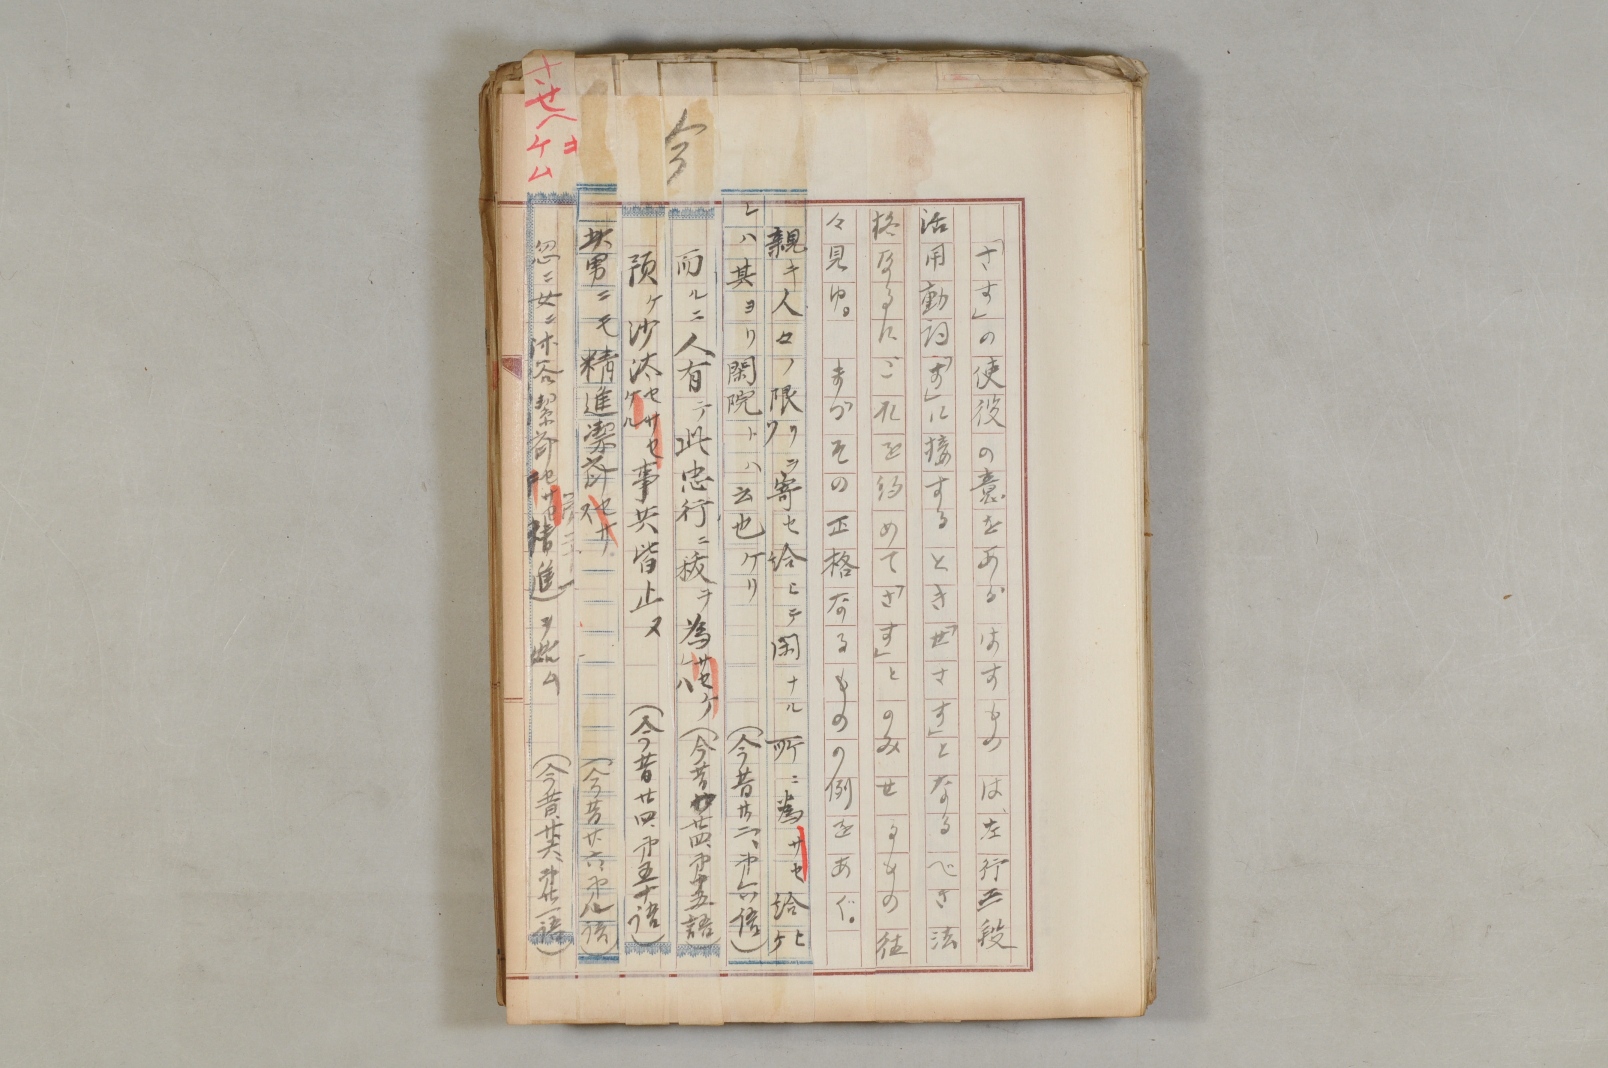 「さす」の使役の意をあらはすものは、左行三段
活用動詞「す」に接するとき「せさす」となるべき法
格なるにこれを約めて「さす」とのみせるもの往
々見ゆ。まづその正格なるものの例をあぐ。
今
親キ人々ノ限リニ寄セ給ヒテ閑ナル所ニ為サセ給ヒケ
レハ其ヨリ閑院トハ云也ケリ
（今昔廿二、第六語）
而ルニ人有テ此忠行ニ
為サセケ
預ケ沙汰セサセケル事共皆止ヌ
（今昔廿四、第五十語）
此男ニモ精進潔斎セサ
（今昔廿六、第八語）
忽ニ女ニ沐浴潔斎セサセ
精進ヲ始ム